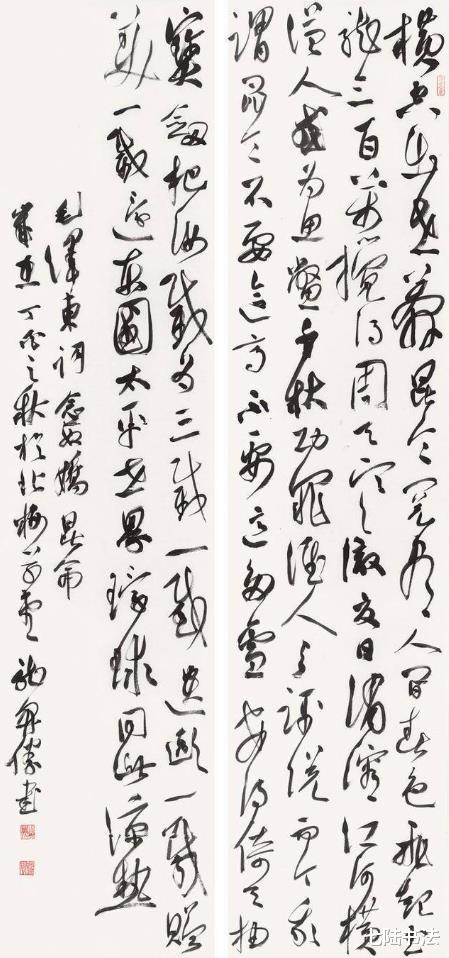 横空出世莽昆仑阅尽人间春色飛起玉
龙三百萬搅得周天寒徹夏日消溶江河横
溢人或为鱼鳖千秋功罪谁人与评说而今我
谓昆仑不要这高不要这多雪安得倚天抽
寶劔把汝裁为三截一截遗欧一截赠
美一截还东國太平世界环球同此凉热
毛澤東词念奴嬌昆仑
歲在丁酉之秋於北 龙开胜书
七陆书法